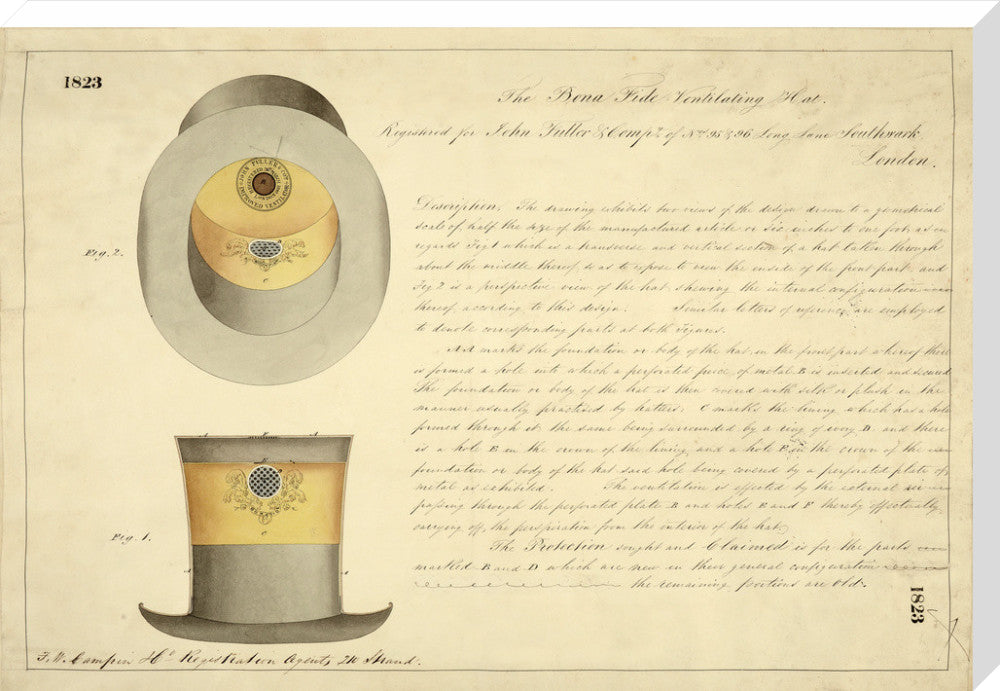 1823
The Bona Fide Ventilating Hat.
Registered for John Fuller & Compy. of Nos. 95 & 96 Long Lane Southwark,
London.
Description. The drawing exhibits two views of the design drawn to a geometrical
scale of half the size of the manufactured article or six inches to one foot, as
regards Fig. 1 which is a transverse and vertical section of a hat taken through
about the middle thereof, so as to expose to view the inside of the front part, and
Fig. 2 is a perspective view of the hat shewing the internal configuration
thereof according to this design. Similar letters of reference are employed
to denote corresponding parts at both Figures.
AA marks the foundation or body of the hat, in the front part whereof there
is formed a hole into which a perforated piece of metal B is inserted and secured
The foundation or body of the hat is then covered with silk or plush in the
manner usually practised by hatters. C marks the lining which has a hole
formed through it the same being surrounded by a ring of ivory D. and there
is a hole E in the crown of the lining, and a hole F in the crown of the
foundation or body of the hat said hole being covered by a perforated plate of
metal as exhibited. The ventilation is effected by the external air
passing through the perforated plate B and holes E and F thereby effectually
carrying off the perspiration from the interior of the hat.
The Protection sought and Claimed is for the parts
marked B and D which are new in their general configuration
the remaining portions are Old.
JOHN FULLER & COY
IMPROVED VENTILATOR
Fig. 2.
C
Fig. 1.
C
1823
F. W. Campin Registration Agents 210 Strand.